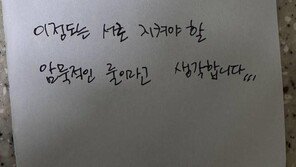 이정도는 서로 지켜야 할
암묵적인 룰이라고 생각합니다,,,